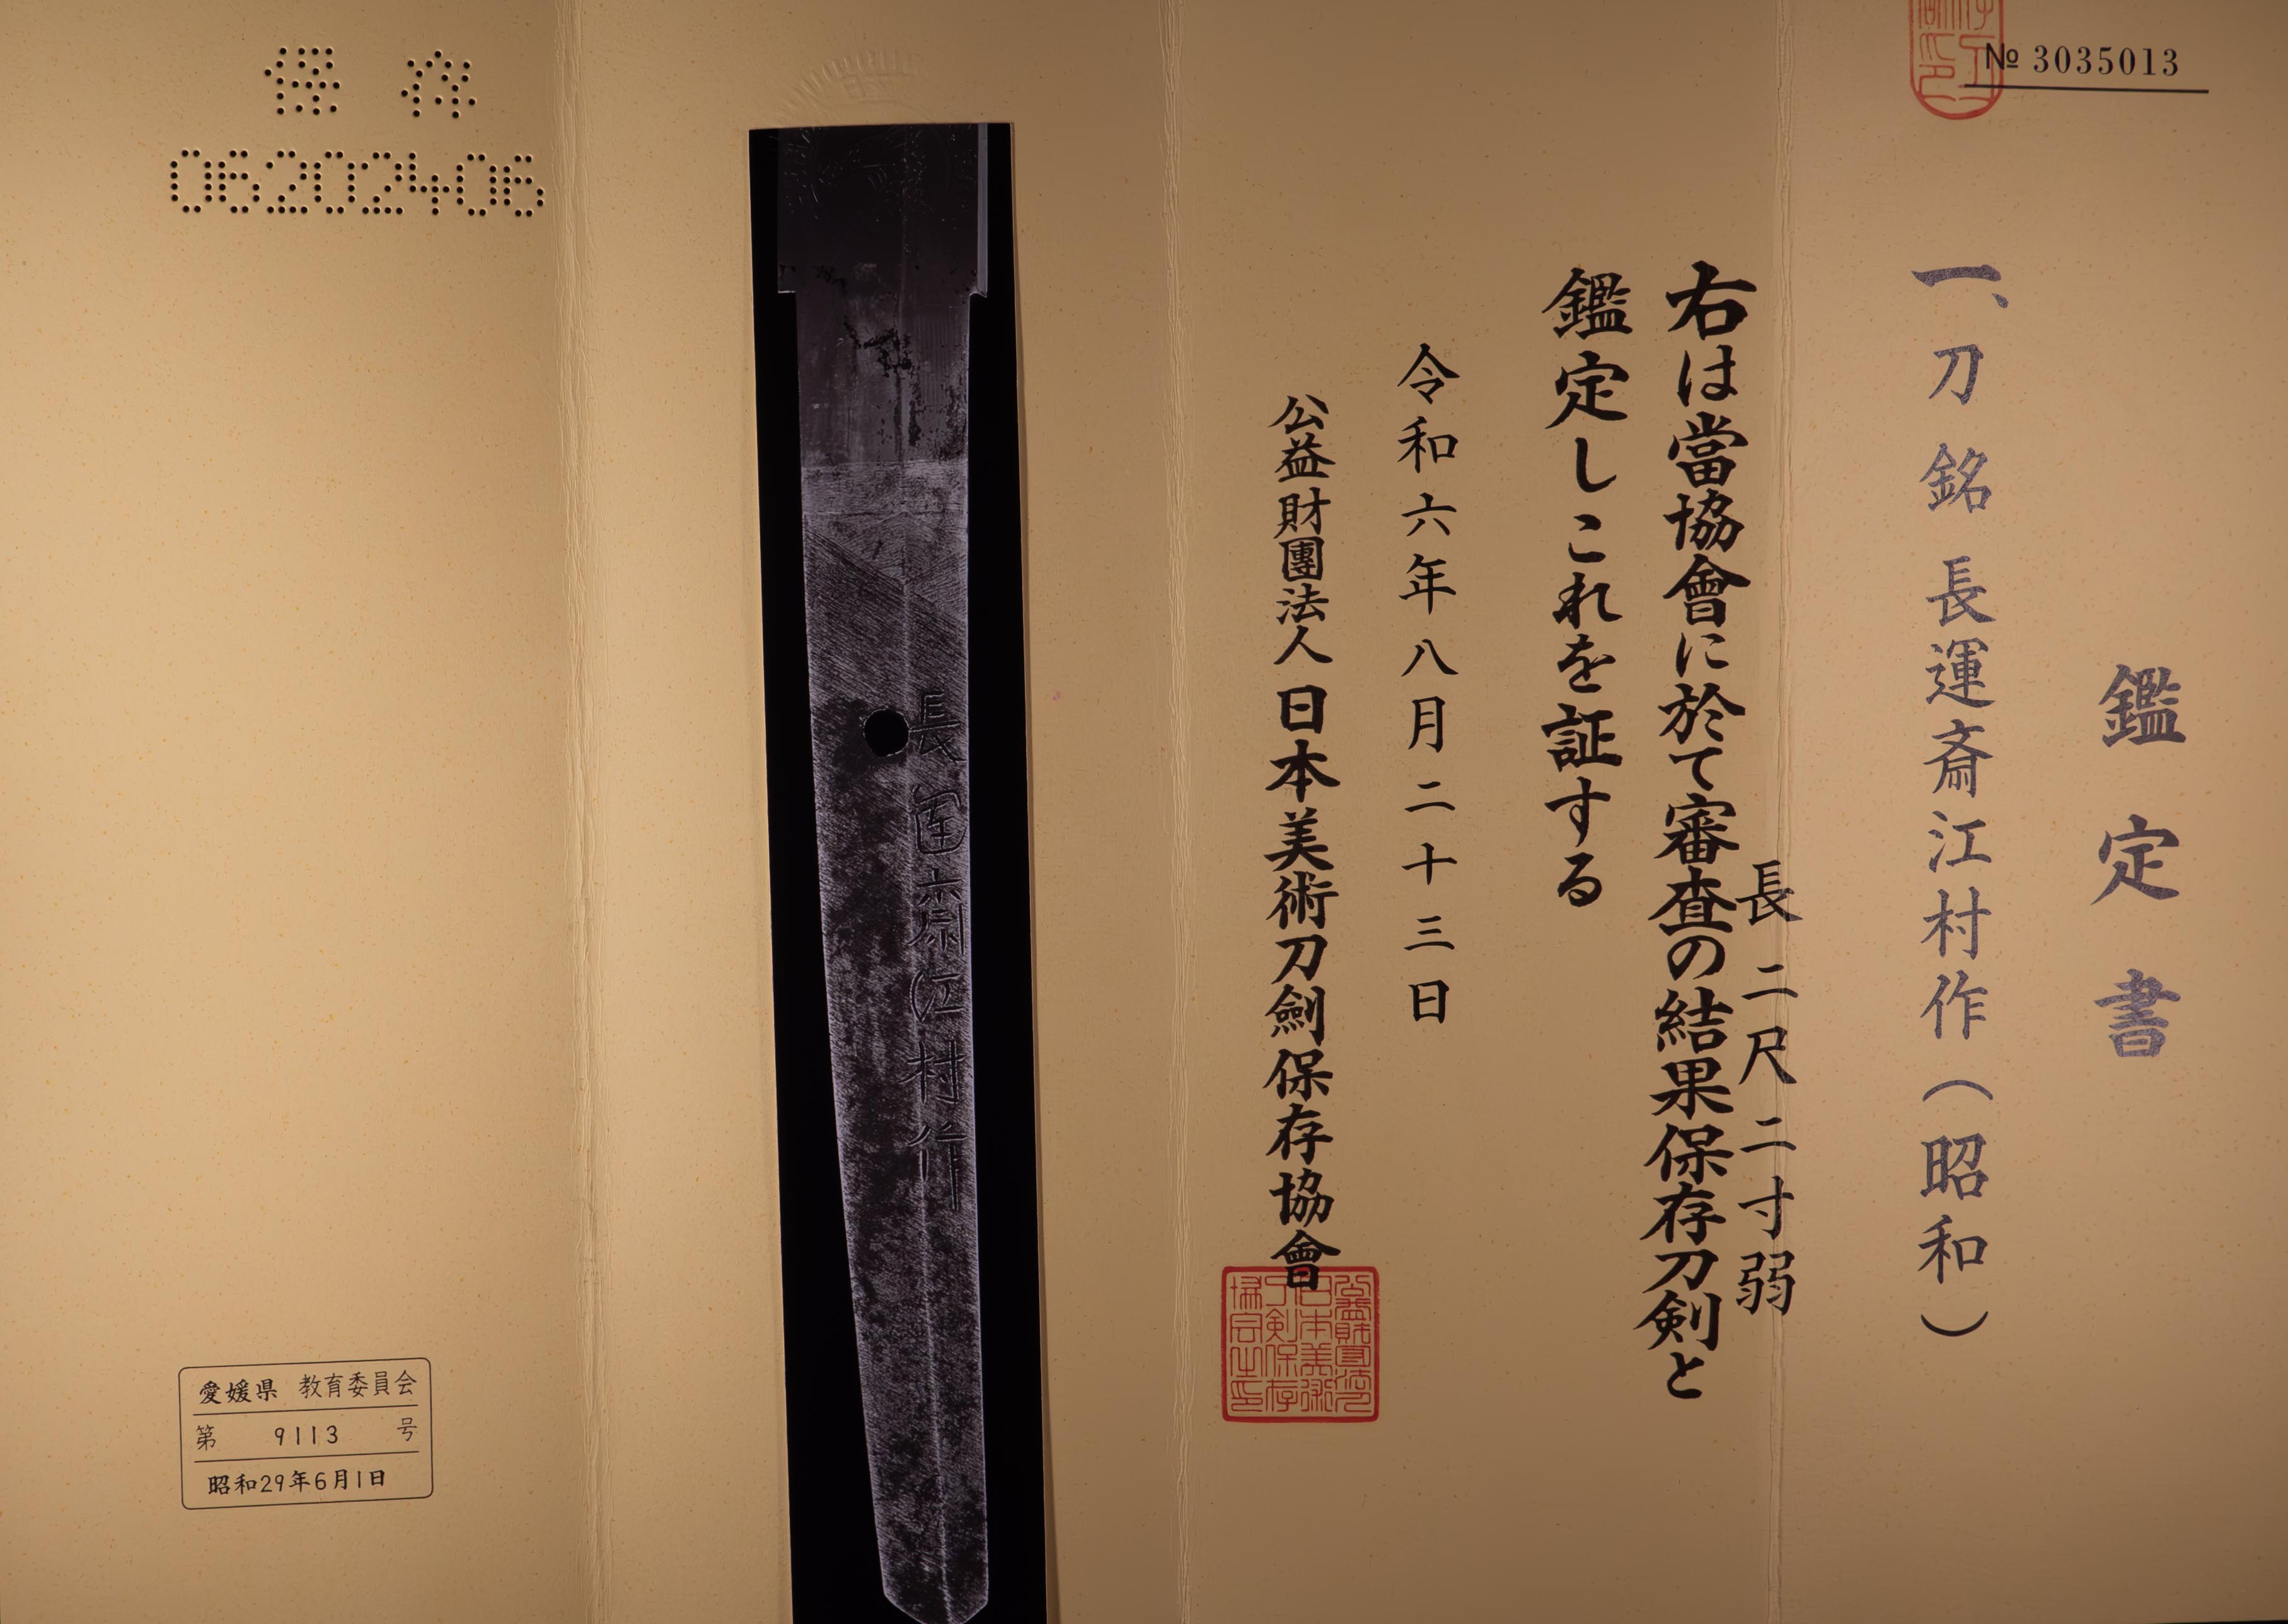 № 3035013
鑑定書
一、刀 銘 長運斎江村作(昭和)
長 二尺二寸弱
右は當協會に於て審査の結果保存刀剣と
鑑定しこれを証する
令和六年八月二十三日
公益財團法人 日本美術刀劍保存協會
公益財団法人
日本美術
刀剣保存
協会之印
長運斎江村作
保存
06202406
愛媛県 教育委員会
第 9113 号
昭和29年6月1日